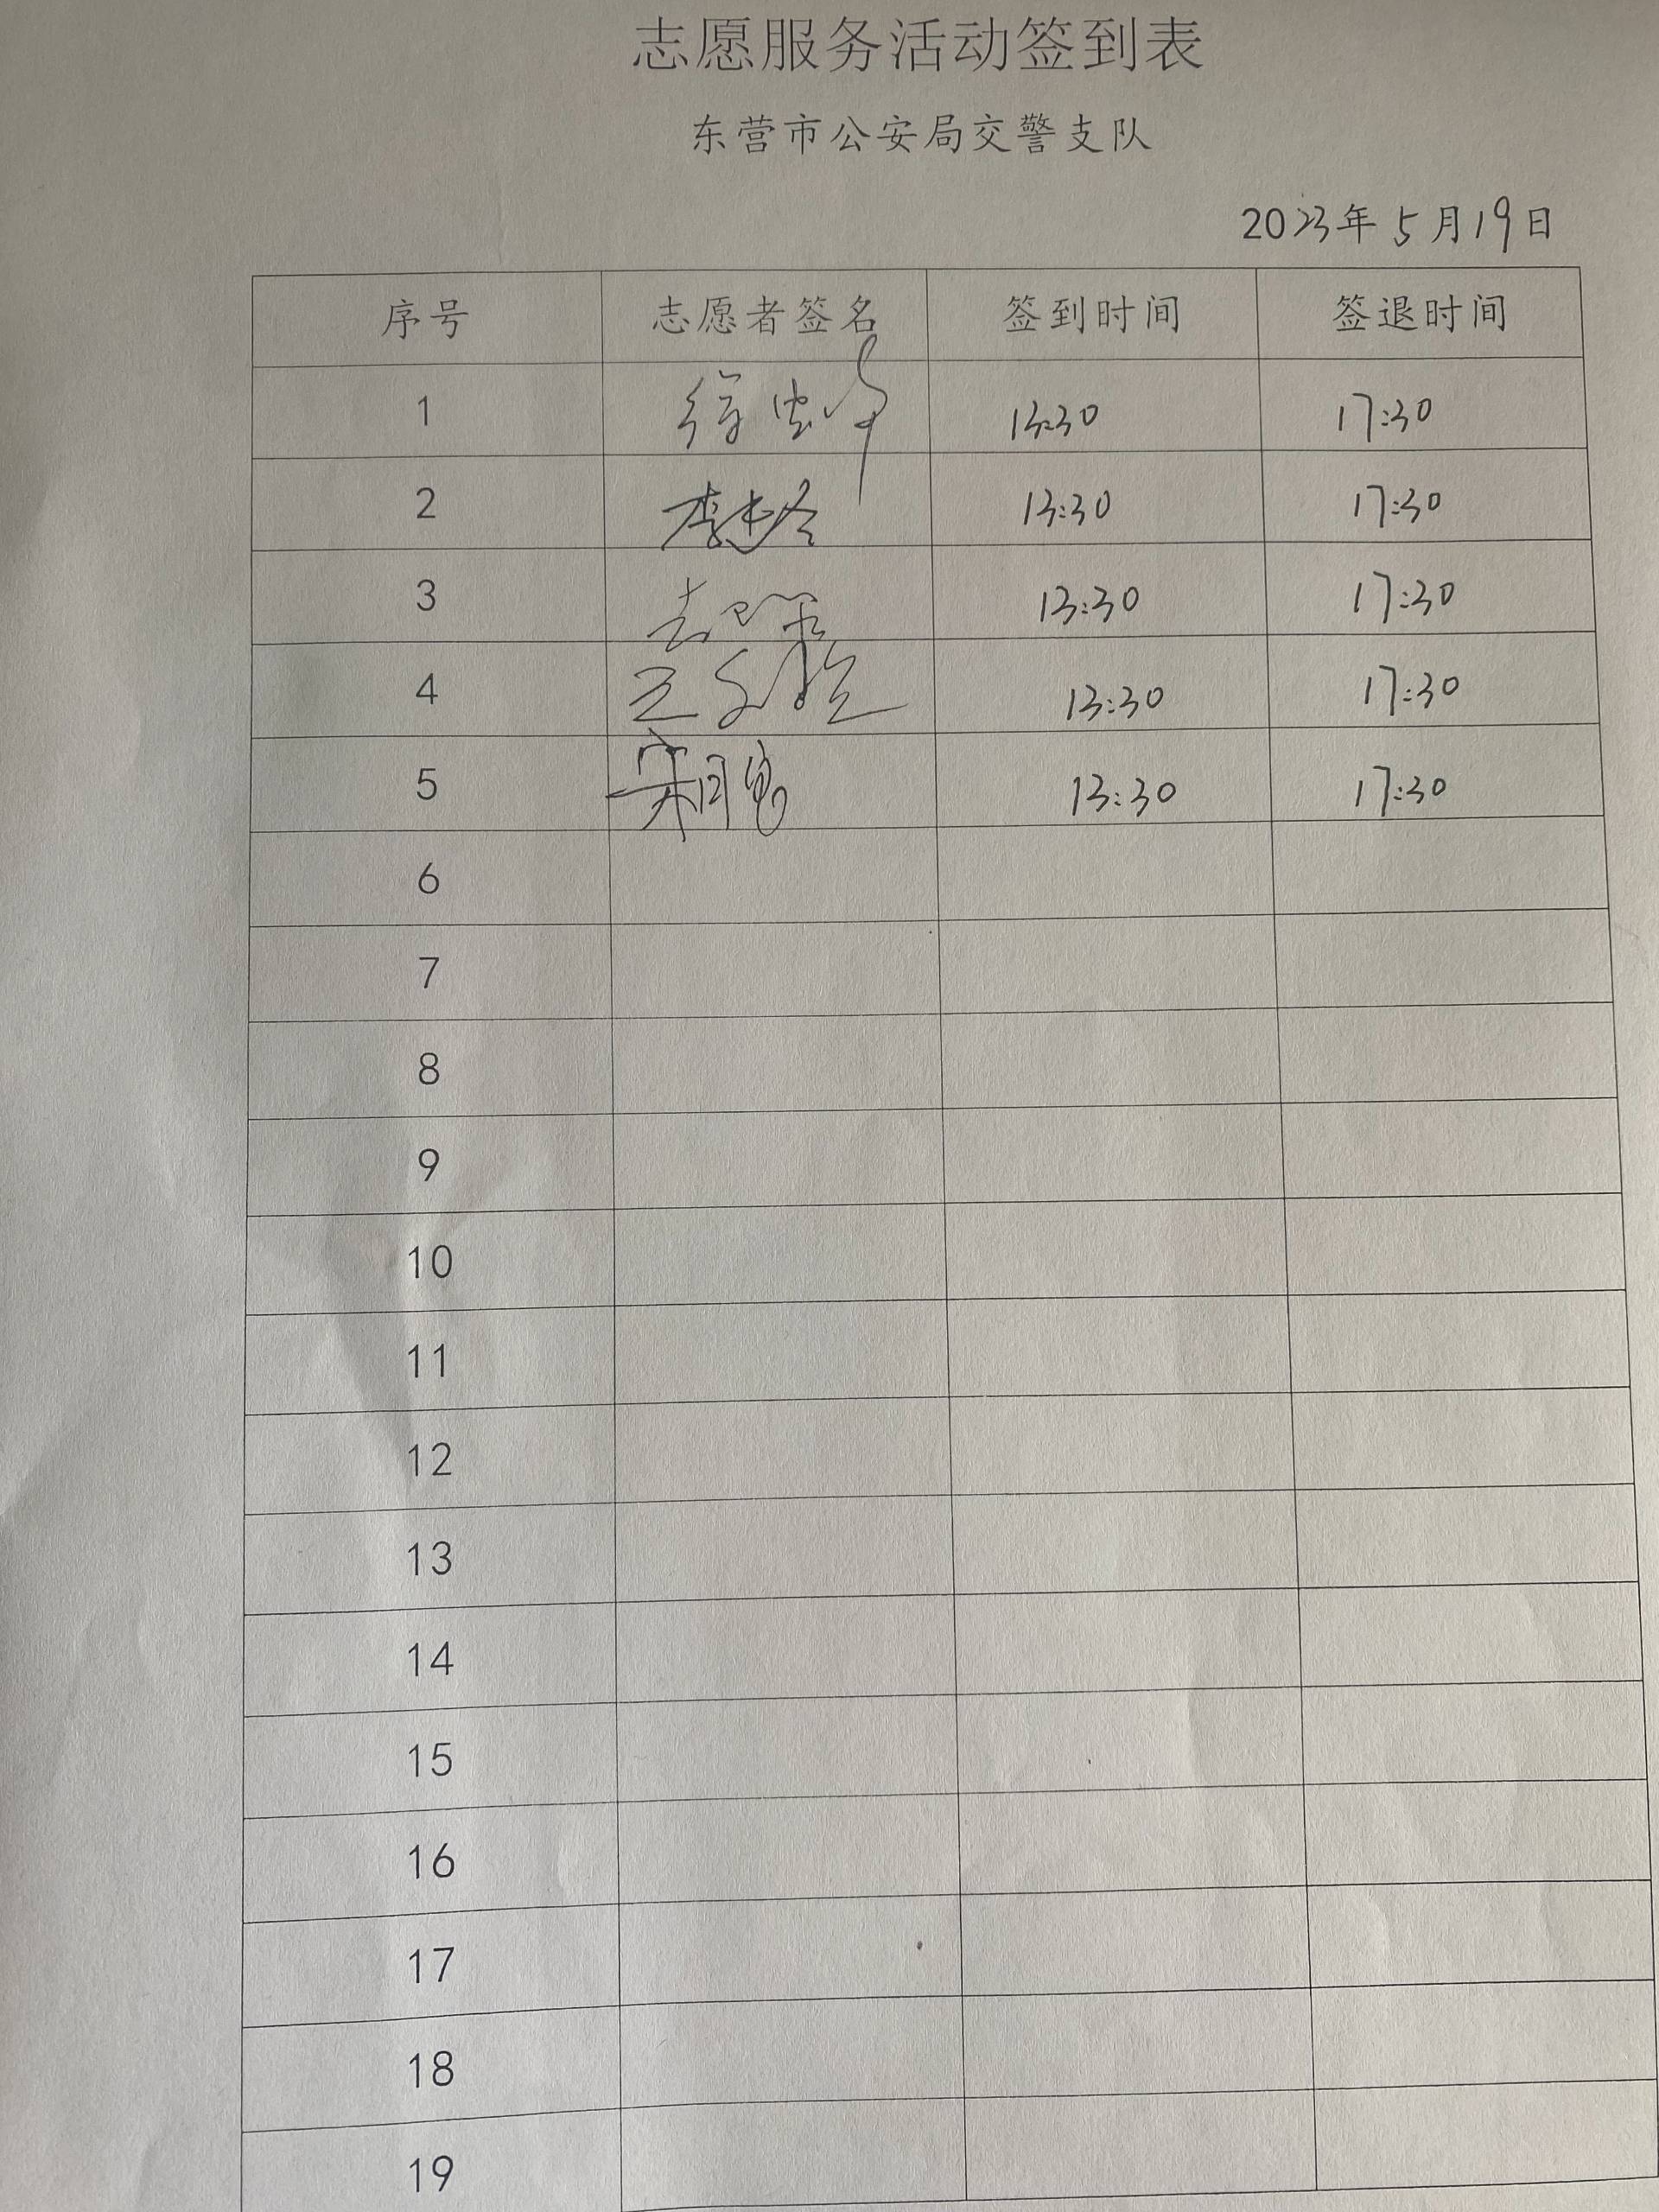 志愿服务活动签到表
东营市公安局交警支队
2023年5月19日
序号 志愿者签名 签到时间 签退时间
1 13:30 17:30
2 13:30 17:30
3 13:30 17:30
4 13:30 17:30
5 13:30 17:30
6
7
8
9
10
11
12
13
14
15
16
17
18
19